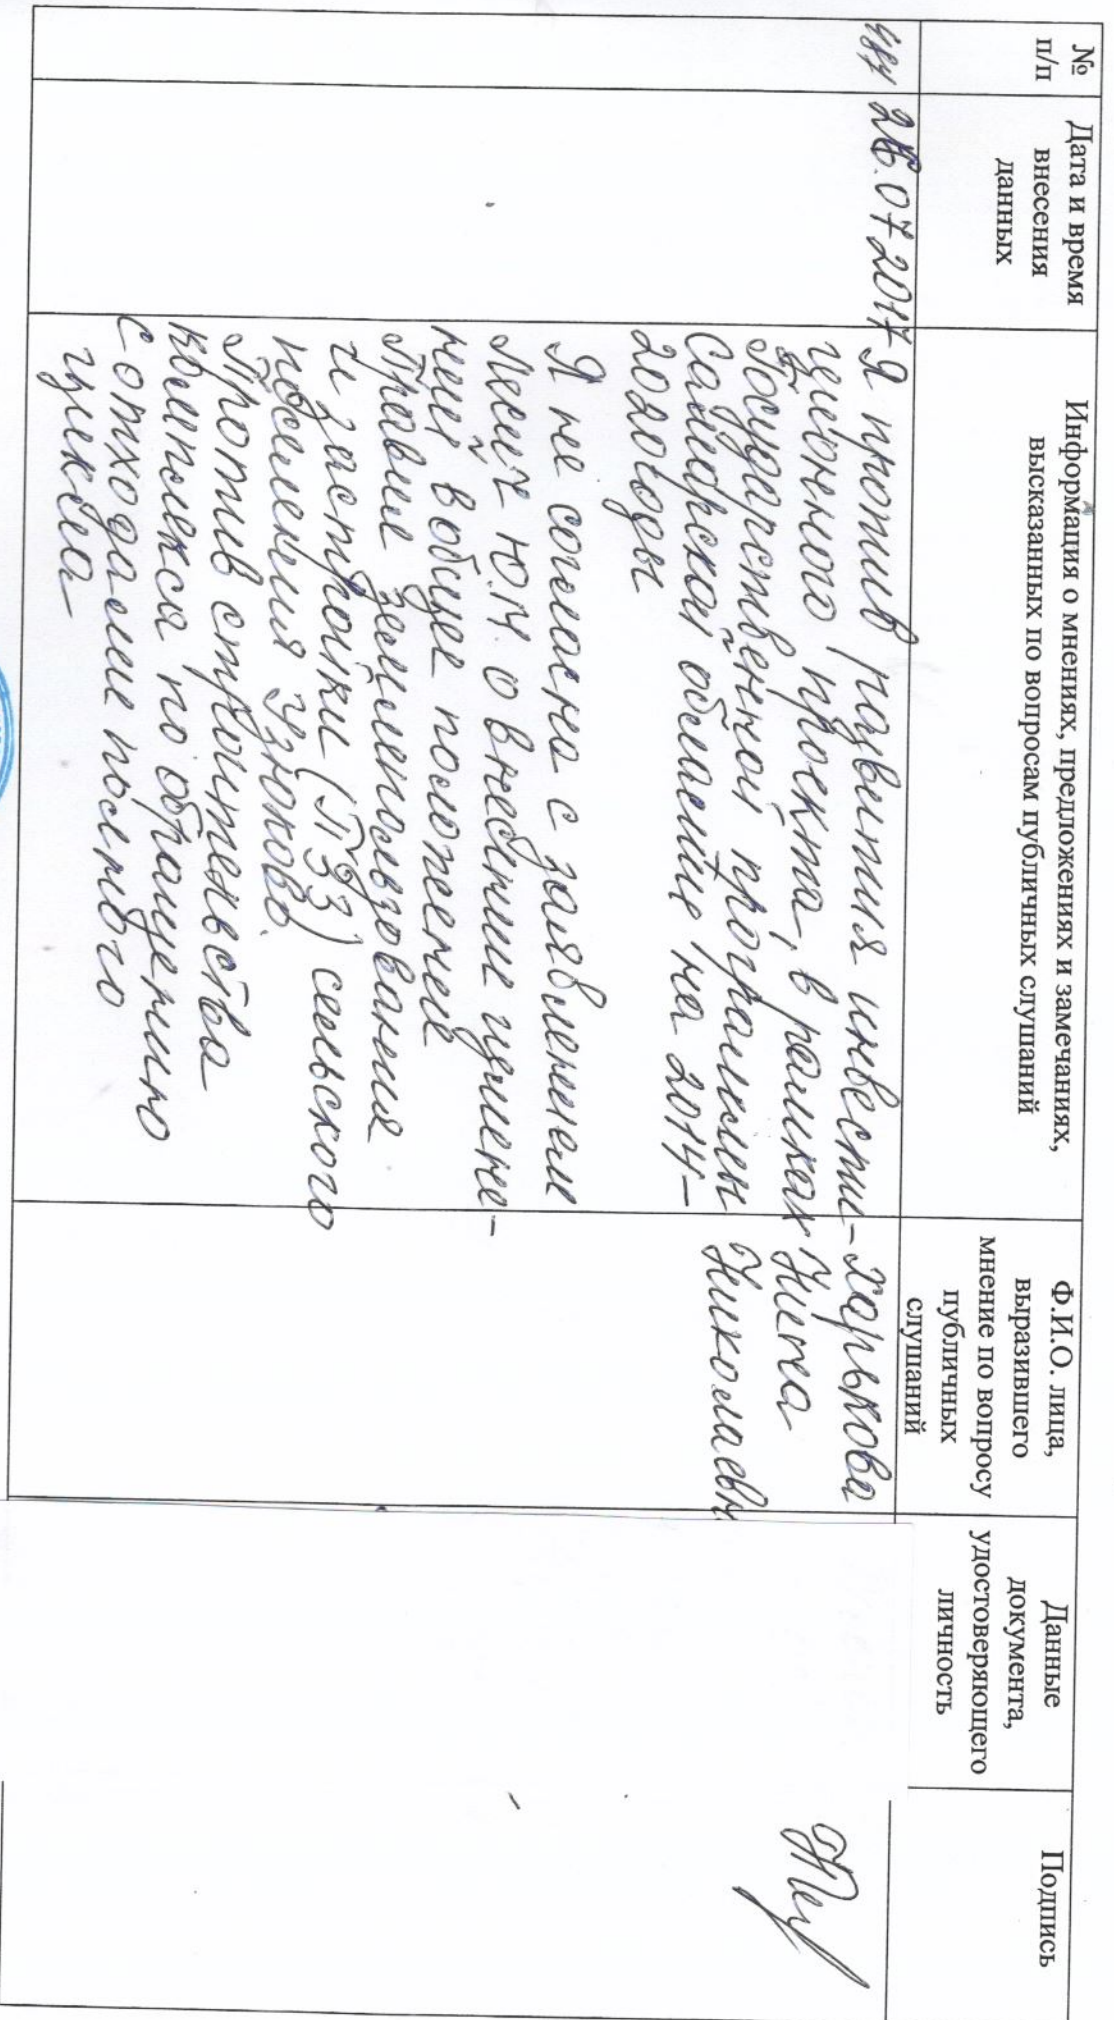 №
п/п
Дата и время
внесения
данных
Информация о мнениях, предложениях и замечаниях,
высказанных по вопросам публичных слушаний
Ф.И.О. лица,
выразившего
мнение по вопросу
публичных
слушаний
Данные
документа,
удостоверяющего
личность
Подпись
26.07.2017
Я против развития инвести-
ционного проекта, в рамках
Государственной программы
Самарской области на 2014-
2020 годы
Я не согласна с заявлением
Лесич Ю.М. о внесении измене-
ний вобще положений
Правие землепользования
и застройки (ПЗЗ) сельского
поселения Узюково.
Против строительства
комплекса по обращению
с отходами посёлкового
Харькова
Нина
Николаевн